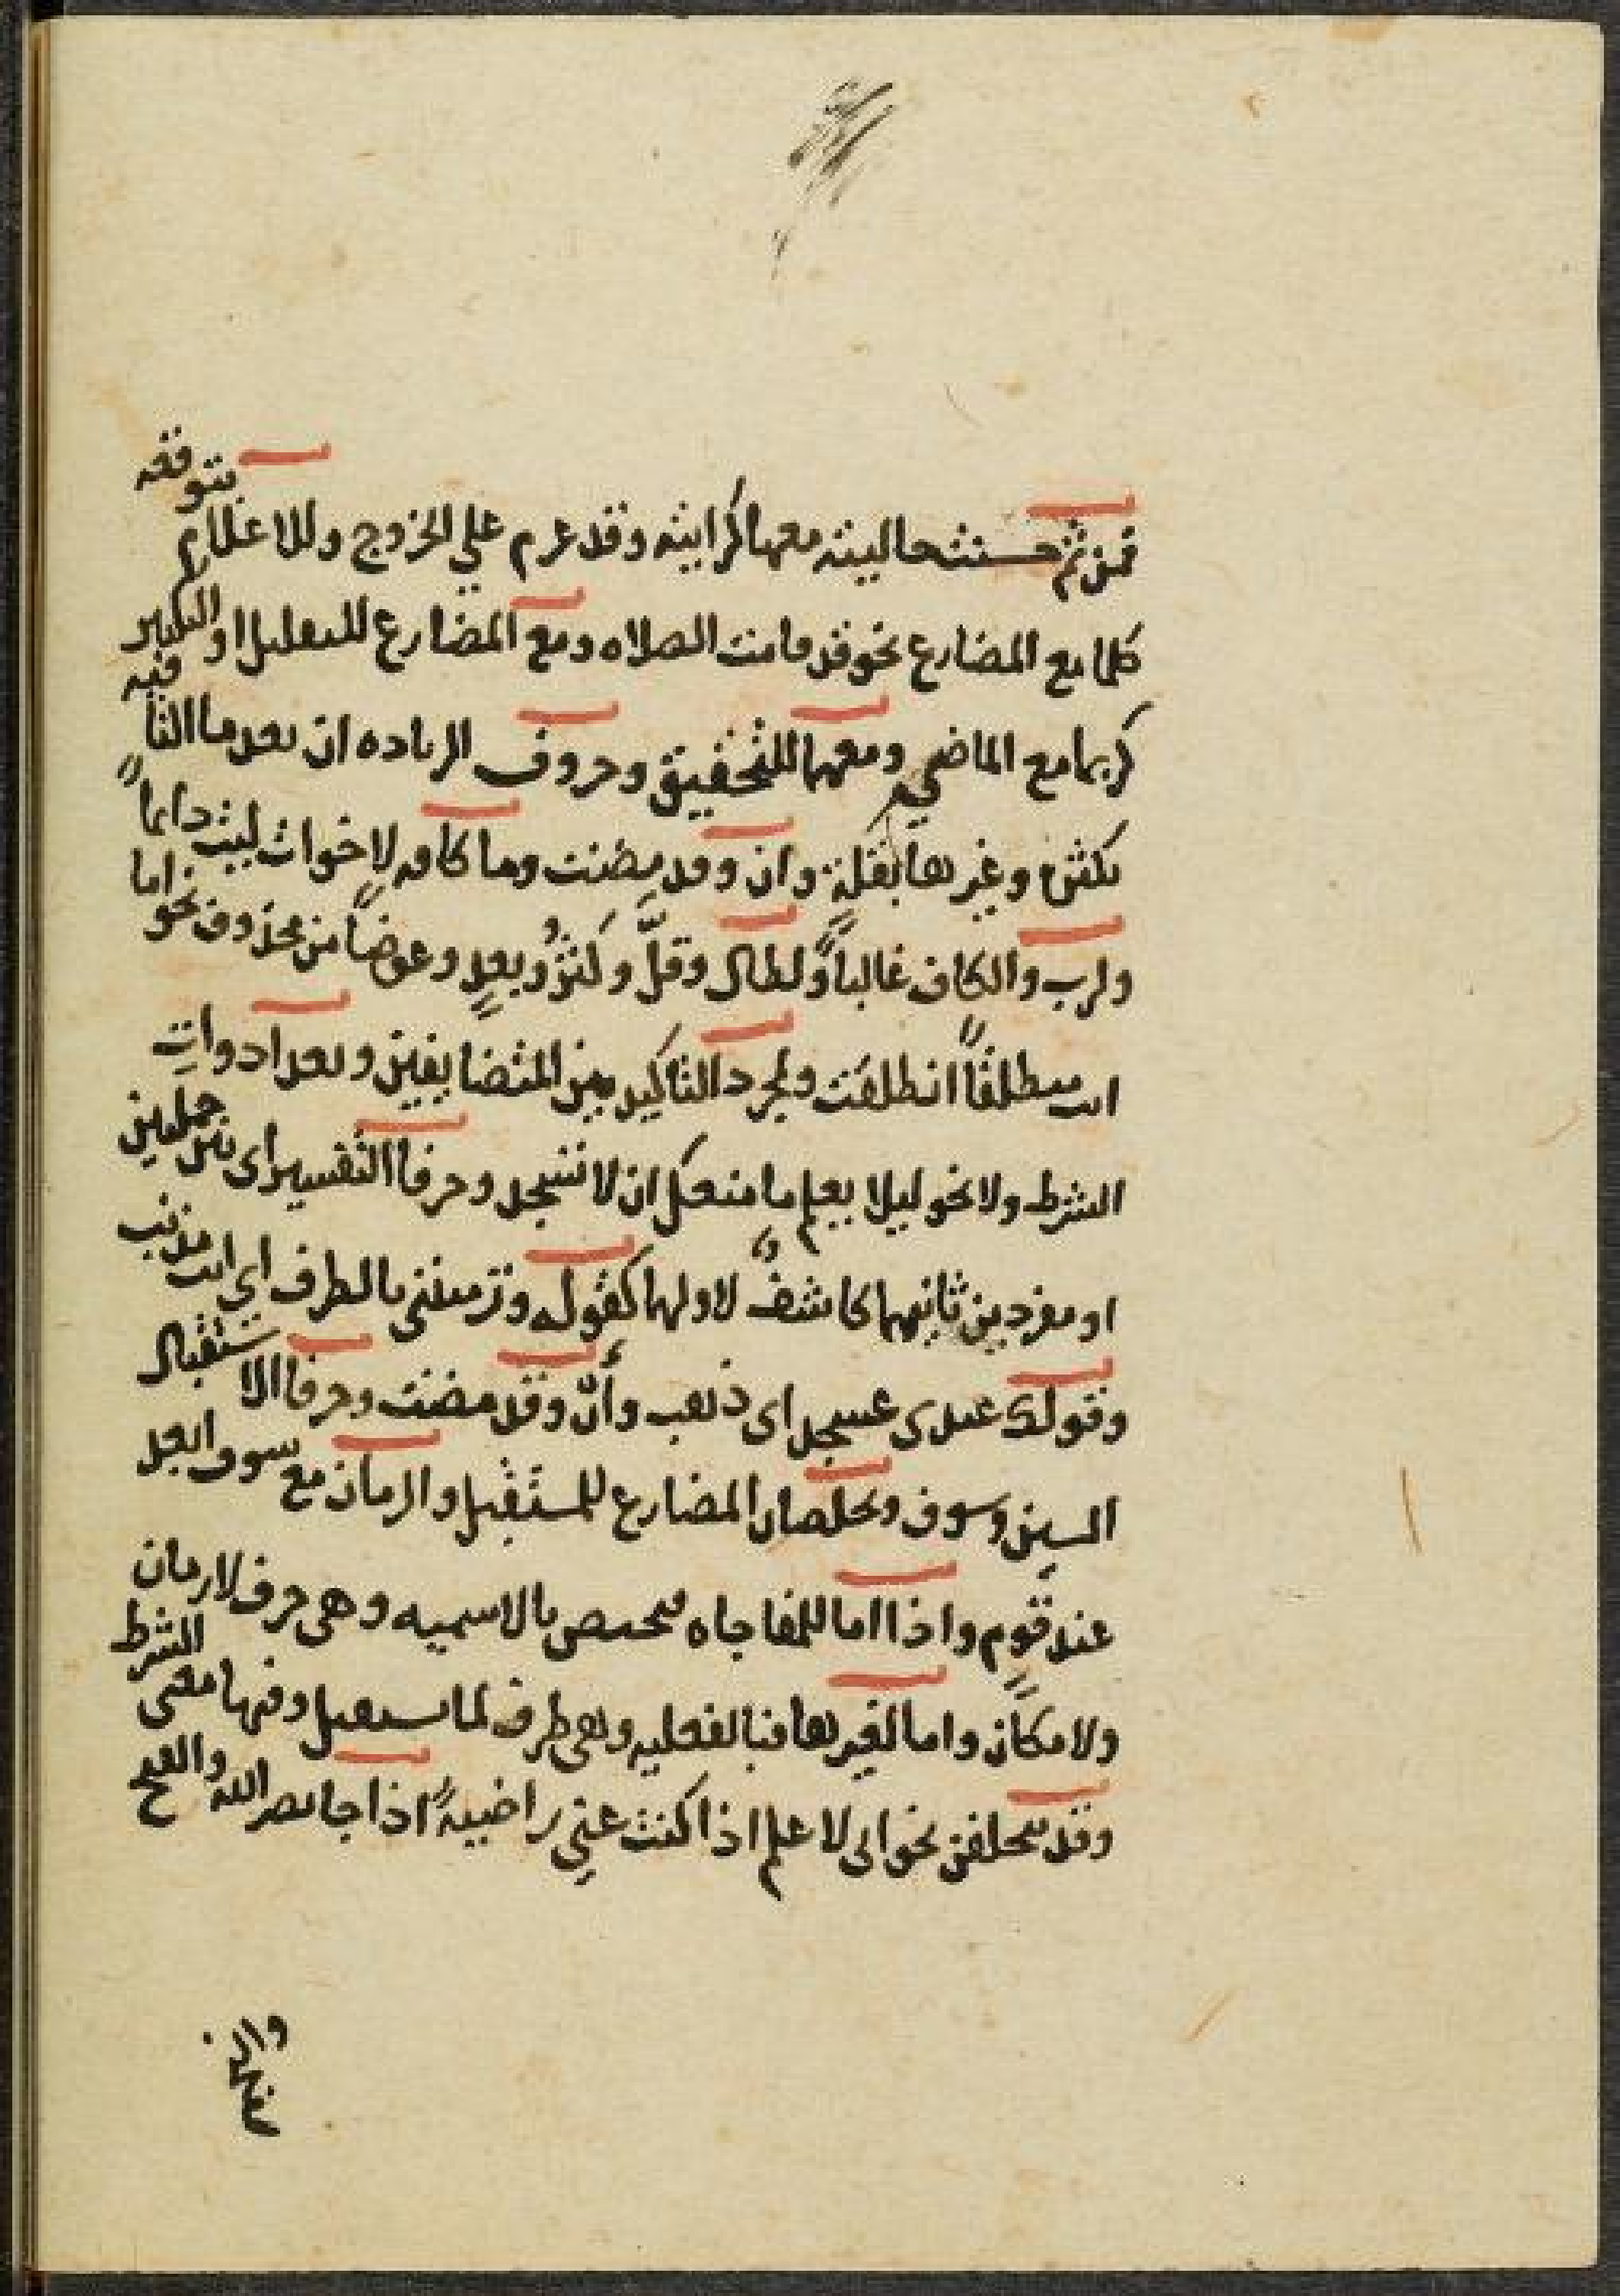 فمن ثم حسنت حاليته معها كرايته وقد عزم علي الخروج وللاعلام بتوقعه
كلما مع المضارع نحو قد قامت الصلاه ومع المضارع للتقليل او التكثير
كربما مع الماضي ومعهما للتحقيق وحروف الزياده ان بعد ما النافيه
بكثرة وغيرها بقلةٍ وان وقد مضت وما كافه لاخوات ليت دايماً
ولرب والكاف غالباً ولطال وقلّ وكثرُ وبعدٍ وعوضاً من محذوف نحو اما
انت منطلقاً انطلقت ولمجرد التاكيد بين المتضايفين وبعد ادواتِ
الشرط ولا نحو ليلا يعلم ما منعك ان لا تسجد وحرفا التفسير اي بين جملتين
او مفردين ثانيهما كاشفٌ لاولهما كقوله وترمينني بالطرف اي انت مذنب
وقولك عندى عسجد اى ذهب وأنّ وقد مضت وحرفا الاستقبال
السين وسوف ويخلصان المضارع للمستقبل والزمان مع سوف ابعد
عند قومٍ واذا اما للمفاجاه فتختص بالاسميه وهى حرف لا زمان
ولا مكان واما لغيرها فبالفعليه وهى ظرف لما يستقبل وفيها معنى الشرط
وقد يتخلفن نحو انى لاعلم اذا كنت عنى راضيةً اذا جا نصر الله والفتح